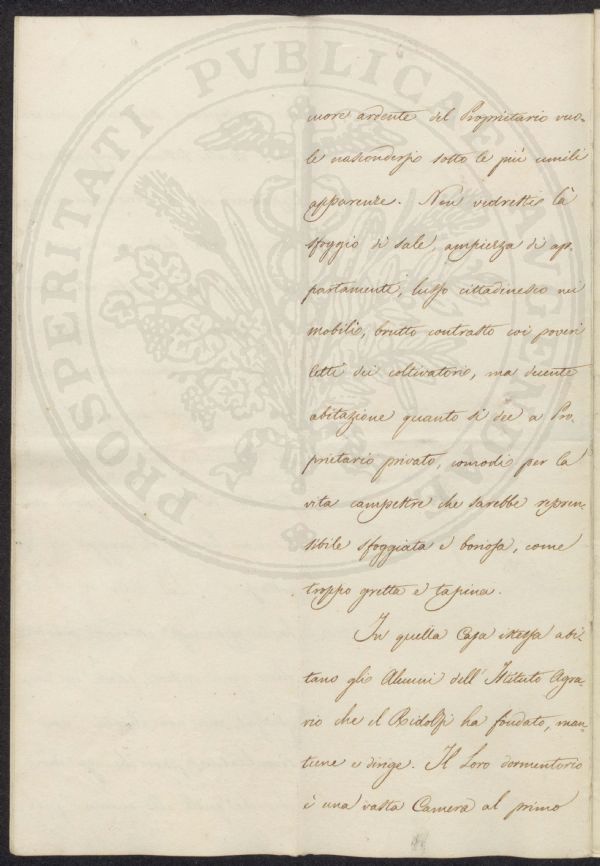 PROSPERITATI PVBLICAE AVGENDAE
cuore ardente del Proprietario vuo-
le nascondersi sotto le più umili
apparenze. Non vedreste là
sfoggio di sale, ampiezza di ap-
partamenti, lusso cittadinesco nei
mobili, brutto contrasto coi poveri
letti dei coltivatori, ma decente
abitazione quanto si dee a Pro-
prietario privato, comodi per la
vita campestre che sarebbe repren-
sibile sfoggiata e boriosa, come
troppo gretta e tapina.
In quella Casa istessa abi-
tano gli Alunni dell'Istituto Agra-
rio che il Ridolfi ha fondato, man-
tiene e dirige. Il Loro dormentorio
è una vasta Camera al primo